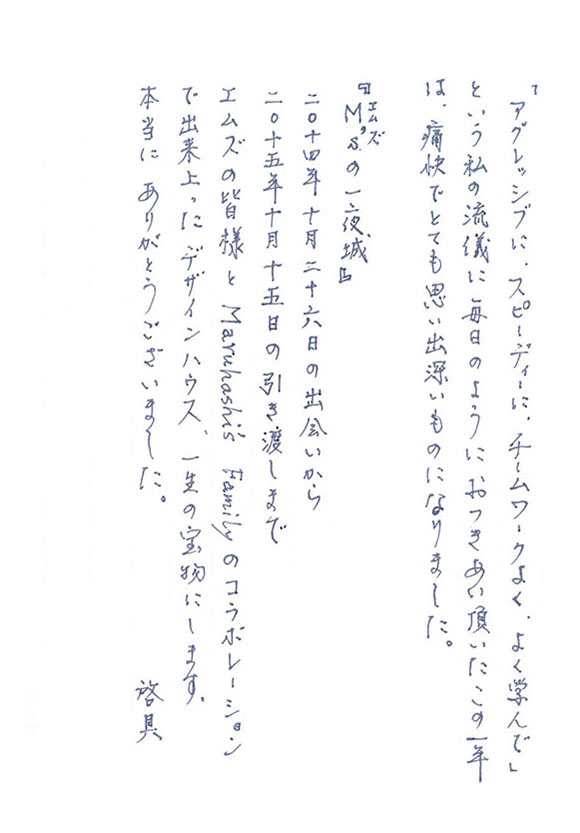 「アグレッシブに、スピーディーに、チームワークよく、よく学んで」
という私の流儀に毎日のようにおつきあい頂いたこの一年
は、痛快でとても思い出深いものになりました。
『M'sの一夜城』
エムズ
二〇十四年十月二十六日の出会いから
二〇十五年十月十五日の引き渡しまで
エムズの皆様と Maruhashi's Family のコラボレーション
で出来上ったデザインハウス、一生の宝物にします。
本当に ありがとうございました。
啓具